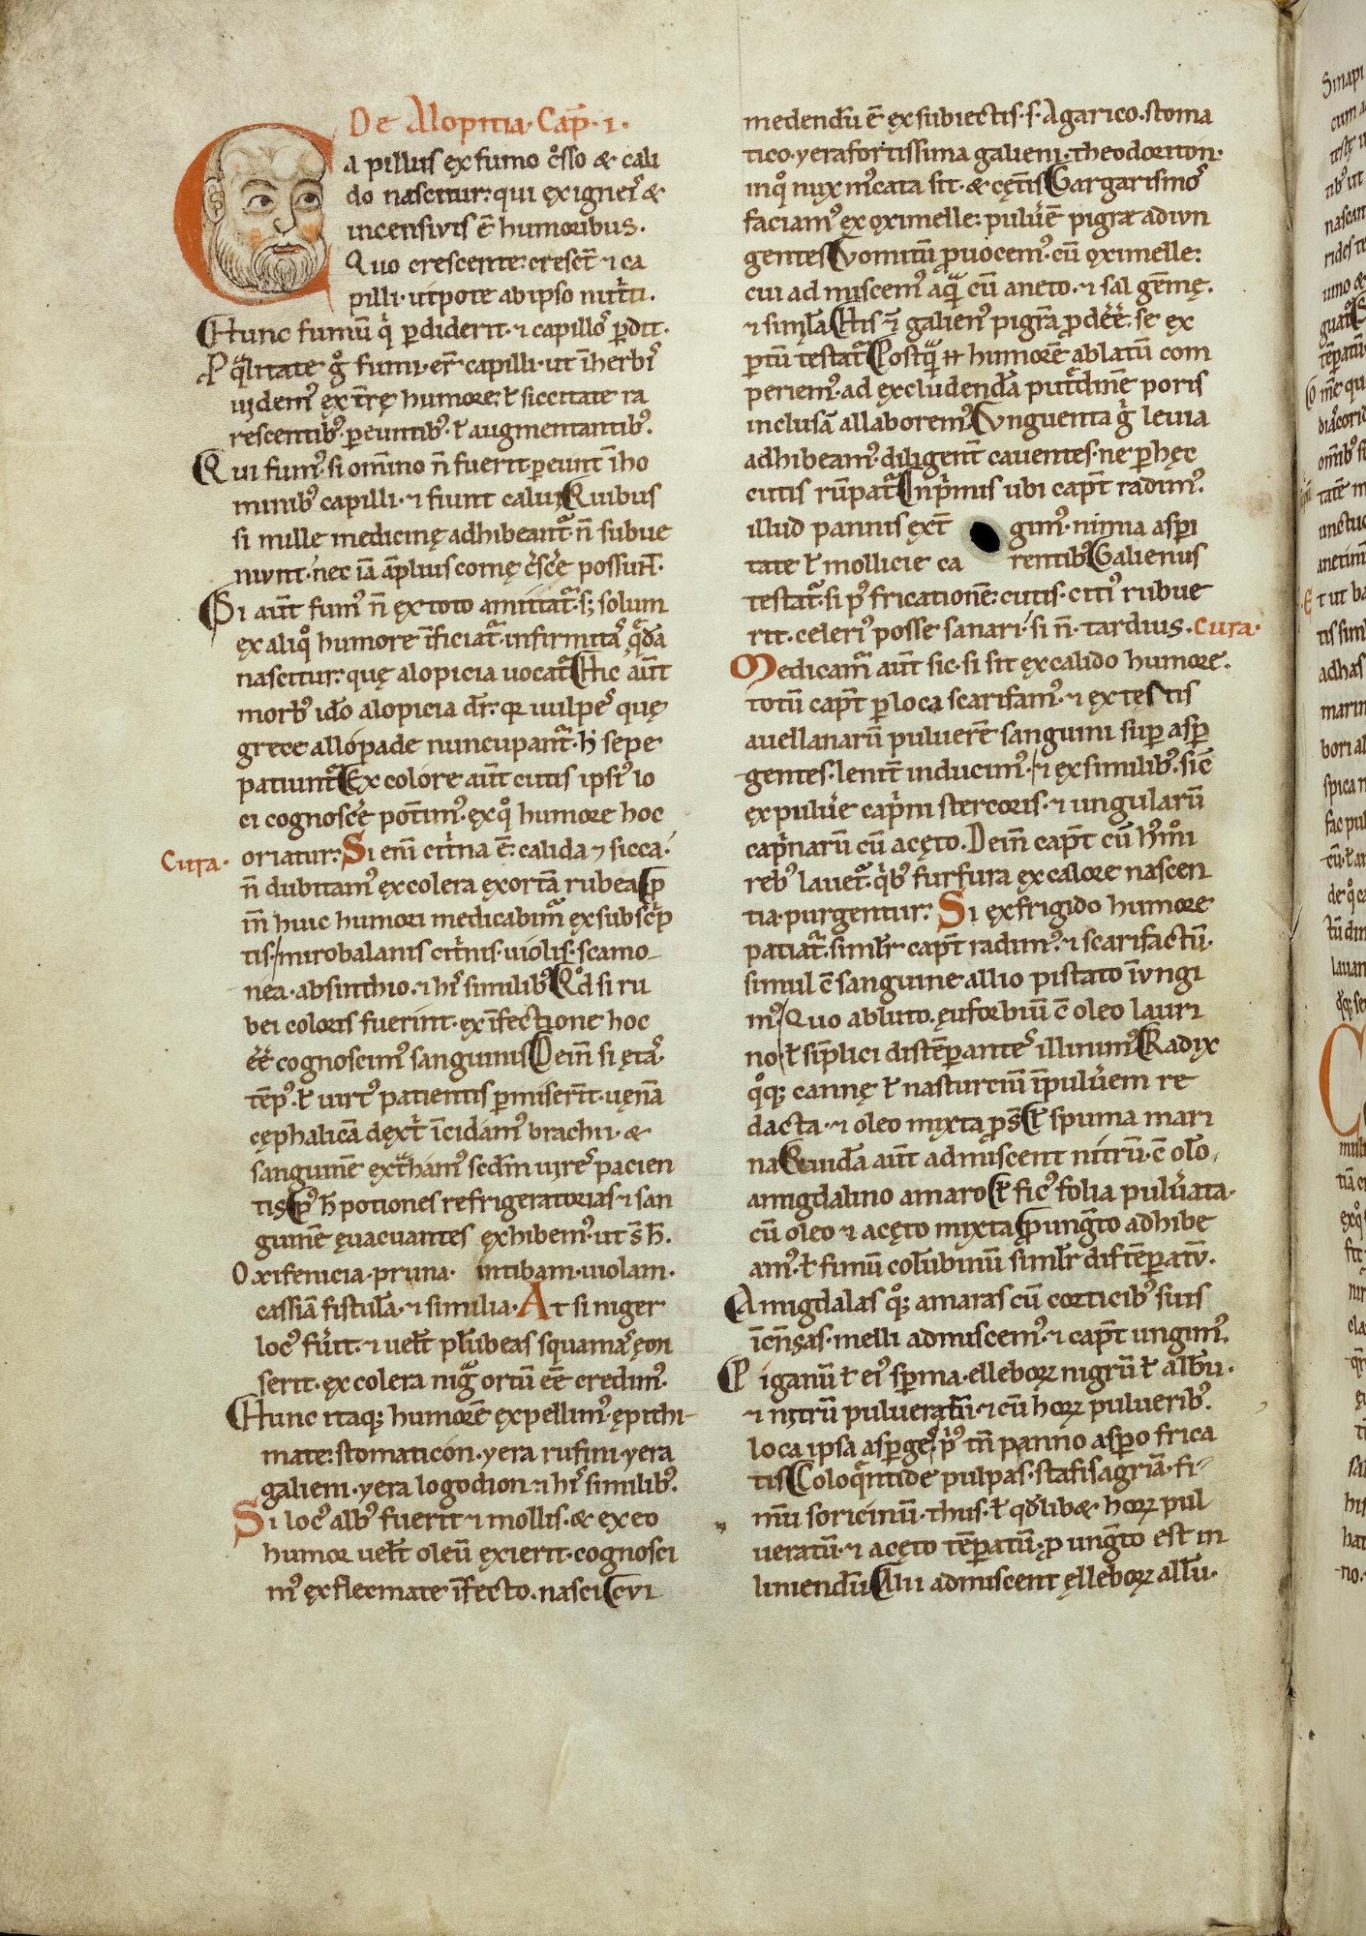 De Alopitia. Cap̄. 1.
Capillus ex fumo g̊sso & cali
do nascitur: qui ex igneis &
incensiuis ē humoribus.
Quo crescente: crescꝉ ⁊ ca
pilli. utpote ab ipso nut̓ti.
Hunc fumū q̓ ꝑdiderit. ⁊ capillos ꝑdit.
P qͣlitate g̊ fumi. er̄ capilli. ut ī herbis
uidemꝰ ex t̄rę humore: ꝉ siccitate ra
rescentibꝰ. ꝑeuntibꝰ. ꝉ augmentantibꝰ.
Qui fumꝰ si om̄ino n̄ fuerit. ꝑeunt ī ho
minibꝰ capilli. ⁊ fiunt calui. Quibus
si mille medicinę adhibeantᷣ. n̄ subue
niunt. nec iā āplius comę cͤscͤe possunt.
Si aūt fumꝰ n̄ ex toto amittatᷣ. sꝫ solum
ex aliqͦ humore īficiatᷣ. infirmitas qͣdā
nascitur: quę alopicia uocatᷣ. Hic aūt
morbꝰ id̄o alopicia dr̄. qꝛ uulpes quę
grece allopade nuncupantᷣ. h̓ sepe
patiuntᷣ. Ex colore aūt cutis ipsiꝰ lo
ci cognoscͤe potim̄ꝰ. ex qͦ humore hoc
Cura. oriatur: Si eni̅ cit̓na ē. calida ⁊ sicca.
n̄ dubitamꝰ ex colera exortā rubea. P
im̄ huic humori medicabimᷣ ex subsc̓p
tis. mirobalanis cit̓nis. uiolis. scamo
nea. absinthio. ⁊ his similibꝰ. Qd̊ si ru
bei coloris fuerint. ex īfectione hoc
ēē cognoscimꝰ sanguinis. Dein̄ si ętas.
tēpꝰ. ꝉ uirtꝰ patientis ꝑmiserīt. uęnā
cęphalicā dext̓ īcidamꝰ brachii. &
sanguinē ext̓hamꝰ scd̄m uires pacien
tis. Pꝰ h̄ potiones refrigeratorias ⁊ san
guinē ęuacuantes exhibemꝰ. ut s̄ h̄.
Oxifenicia. pruna. intibam. uiolam.
cassiā fistulā. ⁊ similia. At si niger
locꝰ fu̓it. ⁊ uelꝉ plūbeas squamas ęon
serit. ex colera nigͣ ortū ēē credimꝰ.
Hunc itaqꝫ humorē expellimꝰ. ępithi
mate: stomaticon. yera rufini. yera
galieni. yera logodion. ⁊ his similibꝰ.
Si locꝰ albꝰ fuerit ⁊ mollis. & ex eo
humor uelꝉ oleū exierit. cognosci
mꝰ ex flecmate īfecto. nasci. Cui
medendū ē ex subiectis. s. Agarico. stoma
tico. yera fortissima galieni. theodoriton.
in qͦ nux mͨcata sit. & cęt̓is. Gargarismos
faciamꝰ ex oximelle: pulu̓ē pigrę adiun
gentes. Vomitū ꝓuocemꝰ. cū oximelle:
cui ad misceemꝰ aqͣ cū aneto. ⁊ sal gēmę.
⁊ simlā. His n̄ galienꝰ pigrā ꝓdēē. se ex
ꝑtū testatᷣ. Postqͣ ħ humorē ablatū com
periemꝰ. ad excludendā putͤdinē poris
inclusā allaboremꝰ. Vnguenta g̊ leuia
adhibeamꝰ. diligent̄ cauentes. ne ꝑ hęc
cutis rūpatᷣ. Inp̓mis ubi caput̄ radimꝰ.
illud pannis ext̄ gimꝰ. nimia asperi
tate ꝉ mollicie ca rentibꝰ. Galienus
testatᷣ. si pꝰ fricationē: cutis. citiꝰ rubue
rit. celeriꝰ posse sanari. si n̄. tardius. Cura.
Medicamᷣ aūt sic. si sit ex calido humore.
totū caput̄ ꝑ loca scarifamꝰ. ⁊ ex testis
auellanarū puluerē sanguini suꝑ asꝑ
gentes. lenit̄ inducimꝰ. ⁊ ex similibꝰ. sic̄
ex pulu̓e cap̓ni stercoris. ⁊ ungularū
cap̓narū cū acęto. Dein̄ caput̄ cū hͨmͦi
rebꝰ lauetᷣ. q̓bꝰ furfura ex calore nascen
tia. purgentur. Si ex frigido humore
patiatᷣ. similr̄ caput̄ radimꝰ. ⁊ scarifactū.
simul c̄ sanguine allio pistato īungi
mꝰ. Quo abluto. ęuforbiū c̄ oleo lauri
no. ꝉ simplici distēꝑantes illinimꝰ. Radix
qͦqꝫ cannę ꝉ nasturciū ī pulu̓em re
dacta. ⁊ oleo mixta ꝓs̄. ꝉ spuma mari
na. Quidā aūt admiscent nitrū. c̄ olō.
amigdalino amaro. ꝉ ficꝰ folia pulu̓ata.
cū oleo ⁊ acęto mixta. ꝓ ungͭto adhibe
amꝰ. ꝉ fimū colūbinū similr̄ distēꝑatū.
Amigdalas qͦꝫ amaras cū corticibꝰ suis
īcēsas. melli admiscemꝰ. ⁊ caput̄ ungimꝰ.
Piganū ꝉ eiꝰ sꝑma. elleboꝝ nigrū ꝉ albū.
⁊ nitrū pulueratū. ⁊ cū hoꝝ pulueribꝰ.
loca ipsa asꝑges. pꝰ tn̄ panno asꝑo frica
tis. Coloqͥntide pulpas. stafisagriā. fi
mū soricinū. thus. ꝉ qd̓libꝫ hoꝝ pul
ueratū. ⁊ acęto tēꝑatū. ꝓ ungͭto est in
liniendū. Alii admiscent ęlleboꝝ albū.